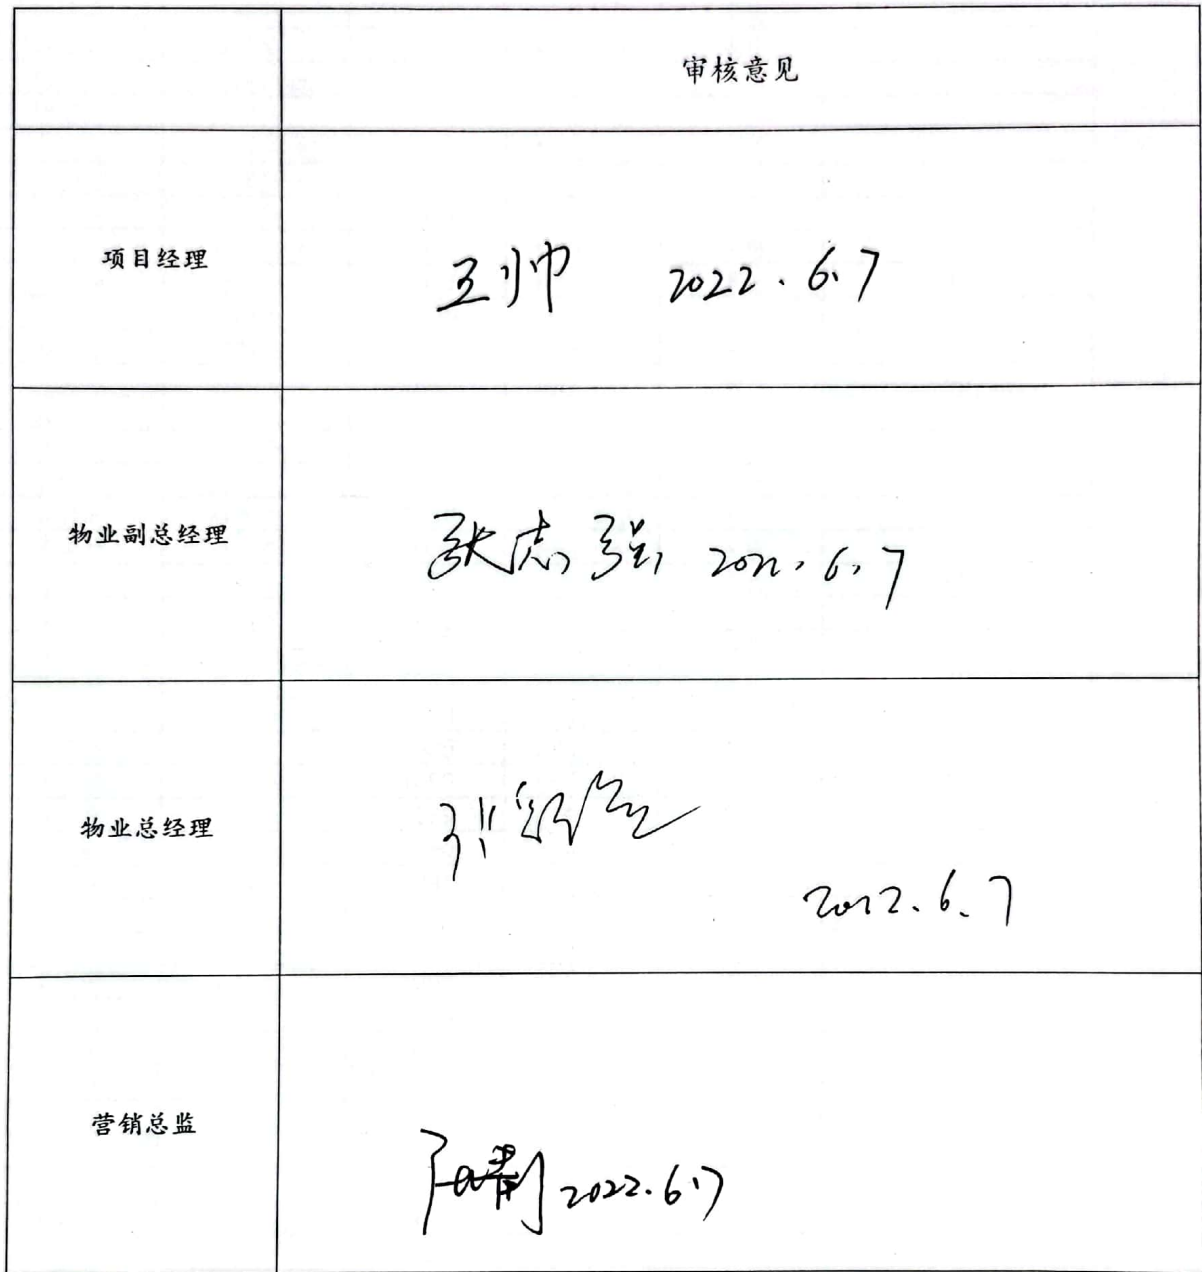 审核意见
项目经理
王帅 2022.6.7
物业副总经理
张志强 2022.6.7
物业总经理
2022.6.7
营销总监
2022.6.7